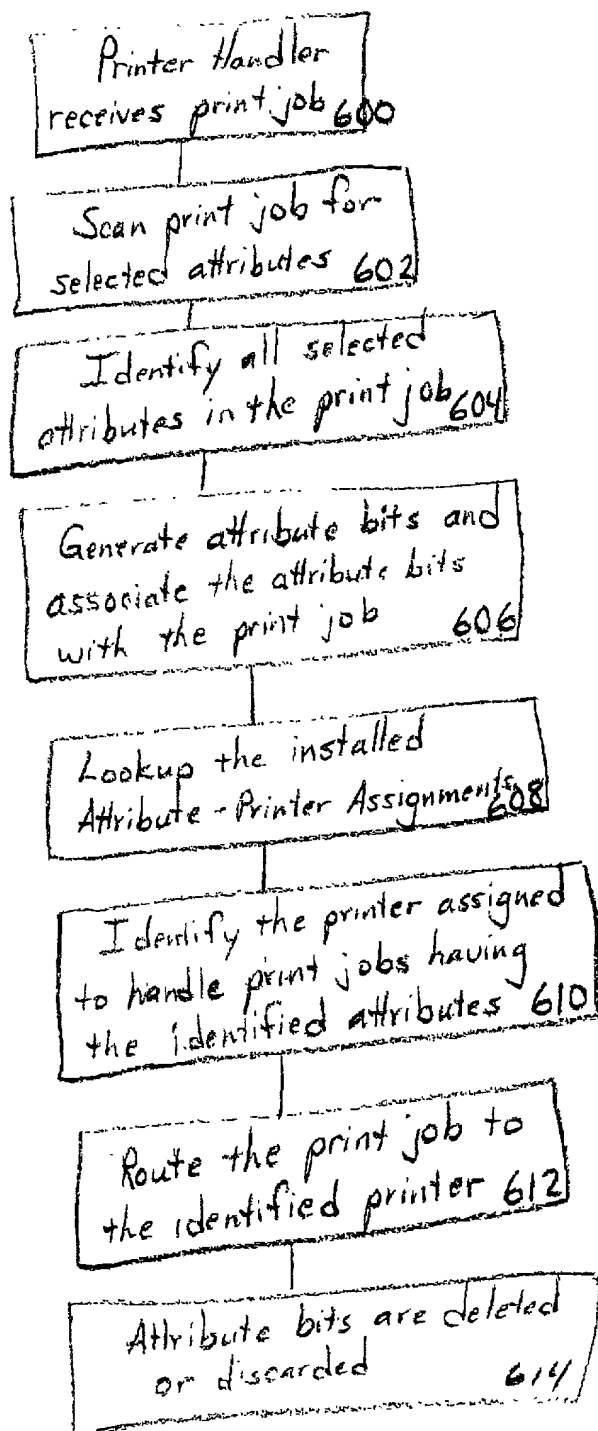 Printer Handler
receives print job 600
Scan print job for
selected attributes 602
Identify all selected
attributes in the print job 604
Generate attribute bits and
associate the attribute bits
with the print job 606
Lookup the installed
Attribute-Printer Assignments 608
Identify the printer assigned
to handle print jobs having
the identified attributes 610
Route the print job to
the identified printer 612
Attribute bits are deleted
or discarded 614